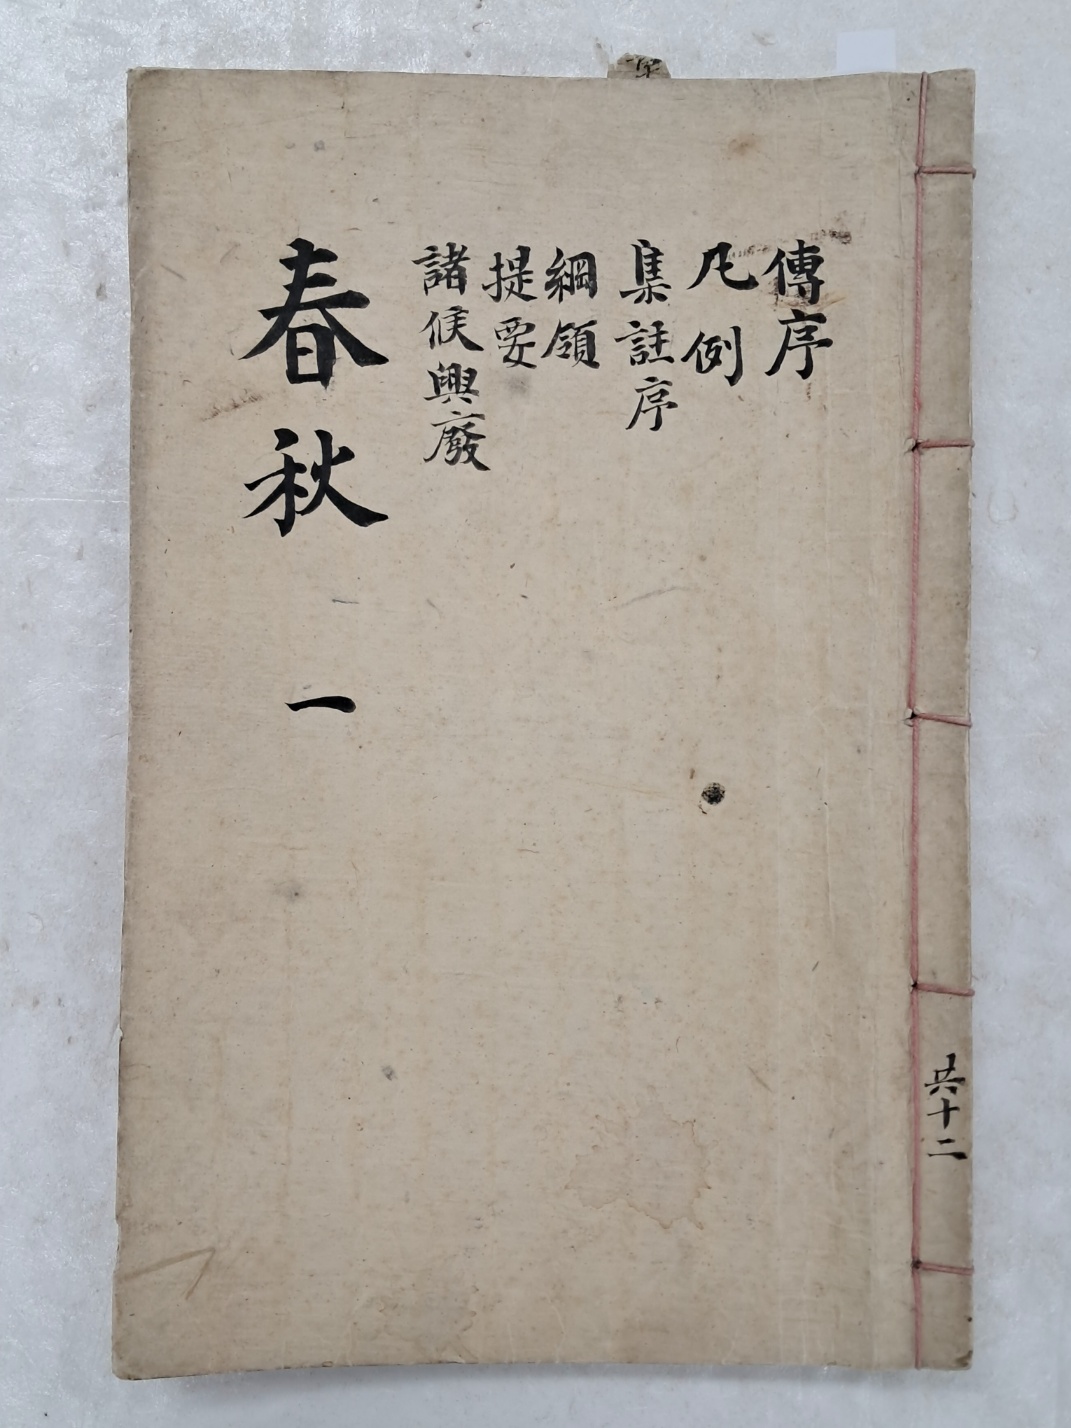 傳序
凡例
集註序
綱領
提要
諸侯興廢
春秋
一
共十二